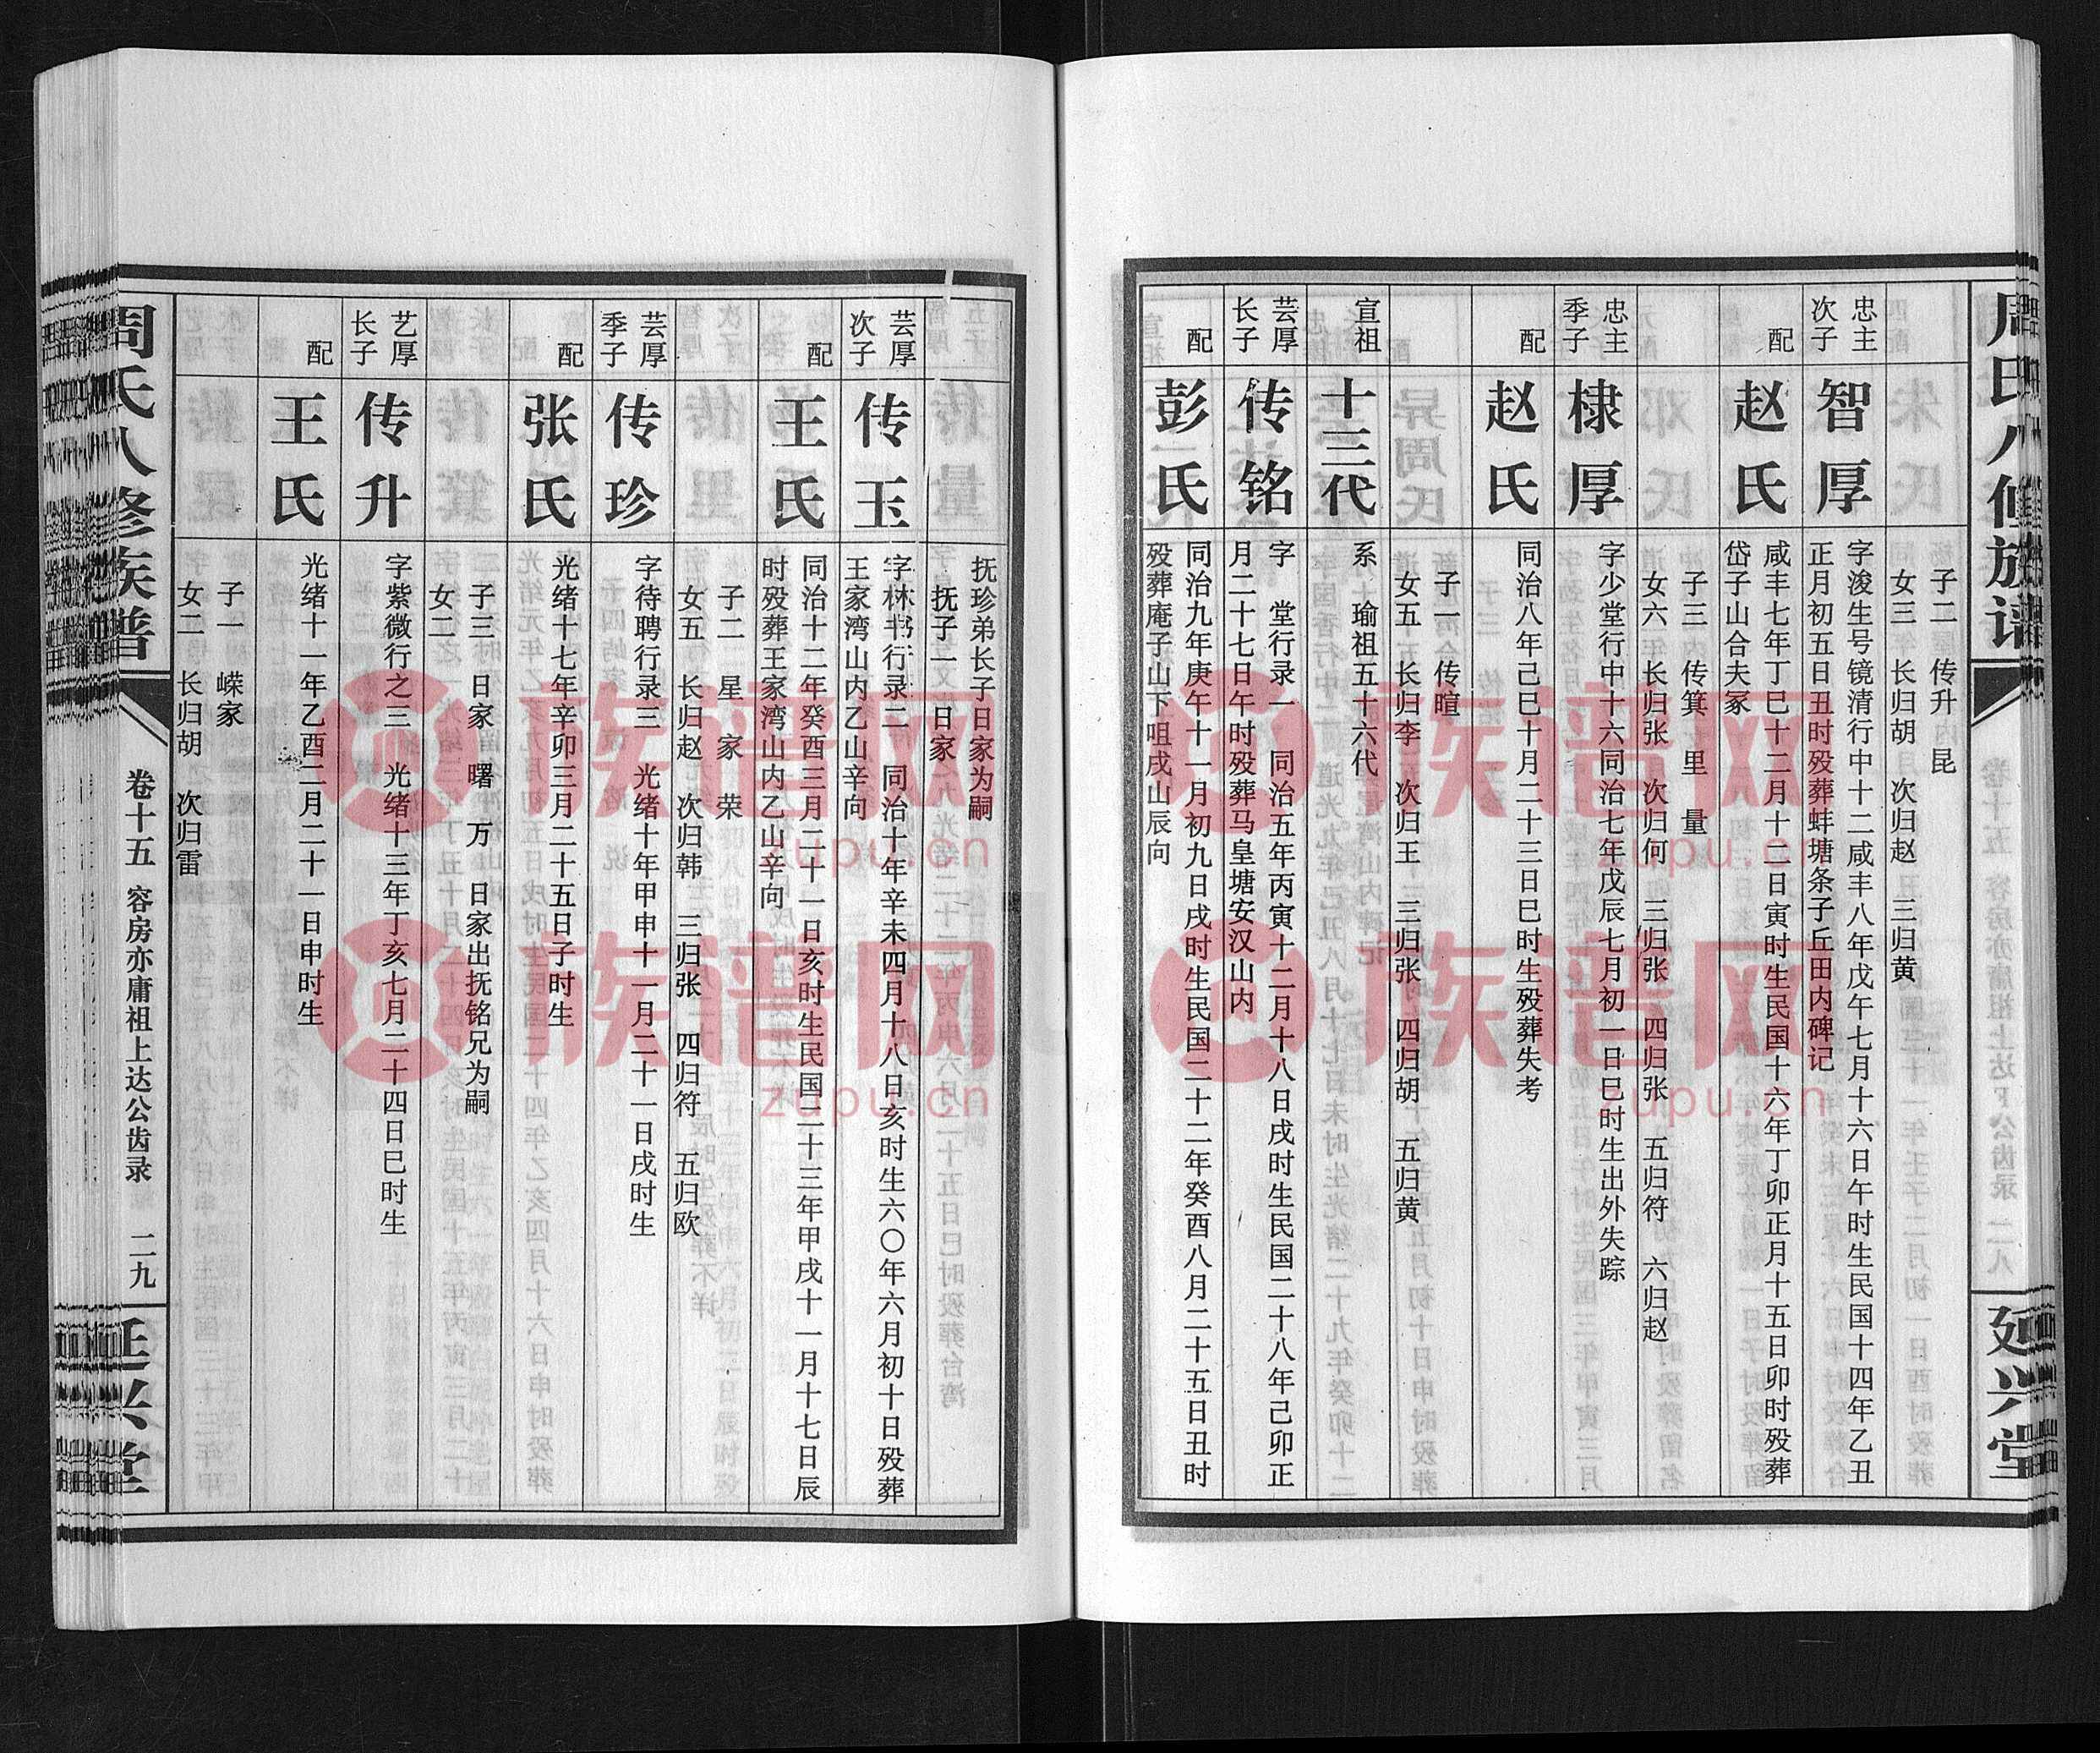 周氏八修族谱
延兴堂
子二 传升 昆
女三 长归胡 次归赵 三归黄
忠主
次子
智厚
字浚生号镜清行中十二咸丰八年戊午七月十六日午时生民国十四年乙丑
正月初五日丑时殁葬蚌塘条子丘田内碑记
配
赵氏
咸丰七年丁巳十二月十二日寅时生民国十六年丁卯正月十五日卯时殁葬
岱子山合夫冢
子三 传箕 里 量
女六 长归张 次归何 三归张 四归张 五归符 六归赵
忠主
季子
棣厚
字少堂行中十六同治七年戊辰七月初一日巳时生出外失踪
配
赵氏
同治八年己巳十月二十三日巳时生殁葬失考
子一 传暄
女五 长归李 次归王 三归张 四归胡 五归黄
宣祖
十三代
系 瑜祖五十六代
芸厚
长子
传铭
字 堂行录一 同治五年丙寅十二月十八日戌时生民国二十八年己卯正
月二十七日午时殁葬马皇塘安汉山内
配
彭氏
同治九年庚午十一月初九日戌时生民国二十二年癸酉八月二十五日丑时
殁葬庵子山下咀戌山辰向
抚珍弟长子日家为嗣
抚子一 日家
芸厚
次子
传玉
字林书行录二 同治十年辛未四月十八日亥时生六〇年六月初十日殁葬
王家湾山内乙山辛向
配
王氏
同治十二年癸酉三月二十一日亥时生民国二十三年甲戌十一月十七日辰
时殁葬王家湾山内乙山辛向
子二 星 家 荣
女五 长归赵 次归韩 三归张 四归符 五归欧
芸厚
季子
传珍
字待聘行录三 光绪十年甲申十一月二十一日戌时生
配
张氏
光绪十七年辛卯三月二十五日子时生
子三 日家 曙 万 日家出抚铭兄为嗣
女二
艺厚
长子
传升
字紫微行之三 光绪十三年丁亥七月二十四日巳时生
配
王氏
光绪十一年乙酉二月二十一日申时生
子一 嵘家
女二 长归胡 次归雷
周氏八修族谱
卷十五 容房亦庸祖上达公齿录 二九
延兴堂
族谱网
zupu.cn
族谱网
zupu.cn
族谱网
zupu.cn
族谱网
zupu.cn